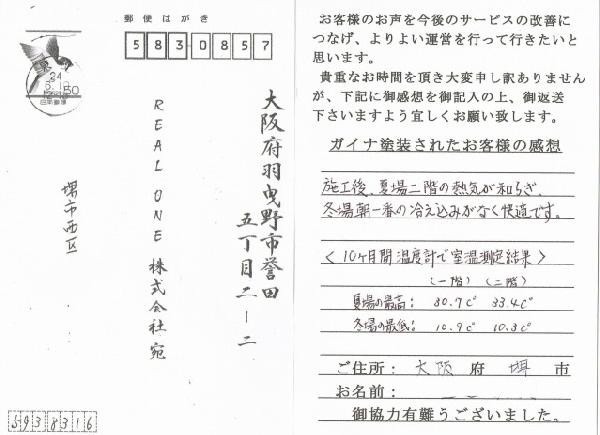 郵便はがき
5830857
大阪府羽曳野市誉田
五丁目二-二
REAL ONE 株式会社宛
堺市西区
5938316
50
お客様のお声を今後のサービスの改善に
つなげ、よりよい運営を行って行きたいと
思います。
貴重なお時間を頂き大変申し訳ありません
が、下記に御感想を御記入の上、御返送
下さいますよう宜しくお願い致します。
ガイナ塗装されたお客様の感想
施工後、夏場二階の熱気が和らぎ、
冬場朝一番の冷え込みがなく快適です。
<10ヶ月間温度計で室温測定結果>
(一階) (二階)
夏場の最高: 30.7C° 33.4C°
冬場の最低: 10.9C° 10.3C°
ご住所: 大阪 府 堺 市
お名前:
御協力有難うございました。